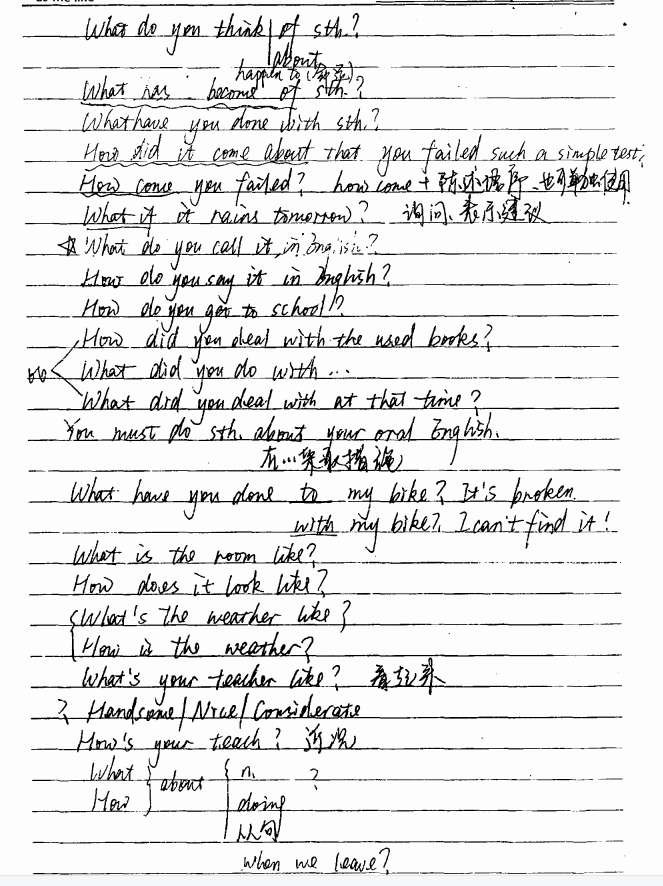 What do you think of sth.?
about
happen to (発生)
What has become of sth.?
What have you done with sth.?
How did it come about that you failed such a simple test?
How come you failed? how come + 陈述语序、也可单独使用
What if it rains tomorrow? 询问、表示建议
☆ What do you call it in English?
How do you say it in English?
How do you get to school?
How did you deal with the used books?
What did you do with ...
What did you deal with at that time?
You must do sth. about your oral English.
在...采取措施
What have you done to my bike? It's broken.
with my bike? I can't find it!
What is the room like?
How does it look like?
What's the weather like?
How is the weather?
What's your teacher like? 看起来
? Handsome/Nice/Considerate
How's your teach? 近况
What about n. ?
How doing
从句
when we leave?